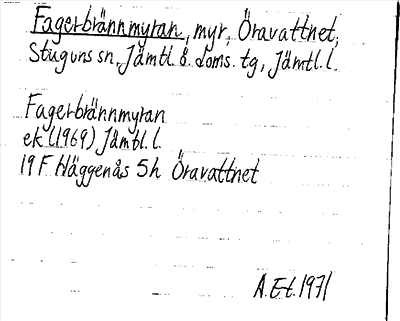 Fagerbrännmyran, myr, Öravattnet,
Stuguns sn, Jämtl. ö. doms. tg, Jämtl. l.
Fagerbrännmyran
ek (1969) Jämtl. l.
19 F Häggenås 5h Öravattnet
A.E-t. 1971